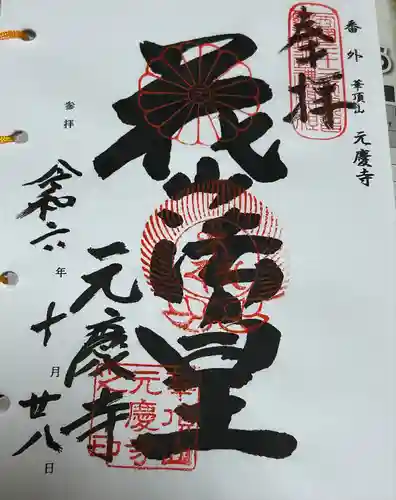 番外 華頂山 元慶寺
奉拝
花山法皇
元慶寺
参拝
令和六年十月廿八日
華頂山
元慶寺
之印